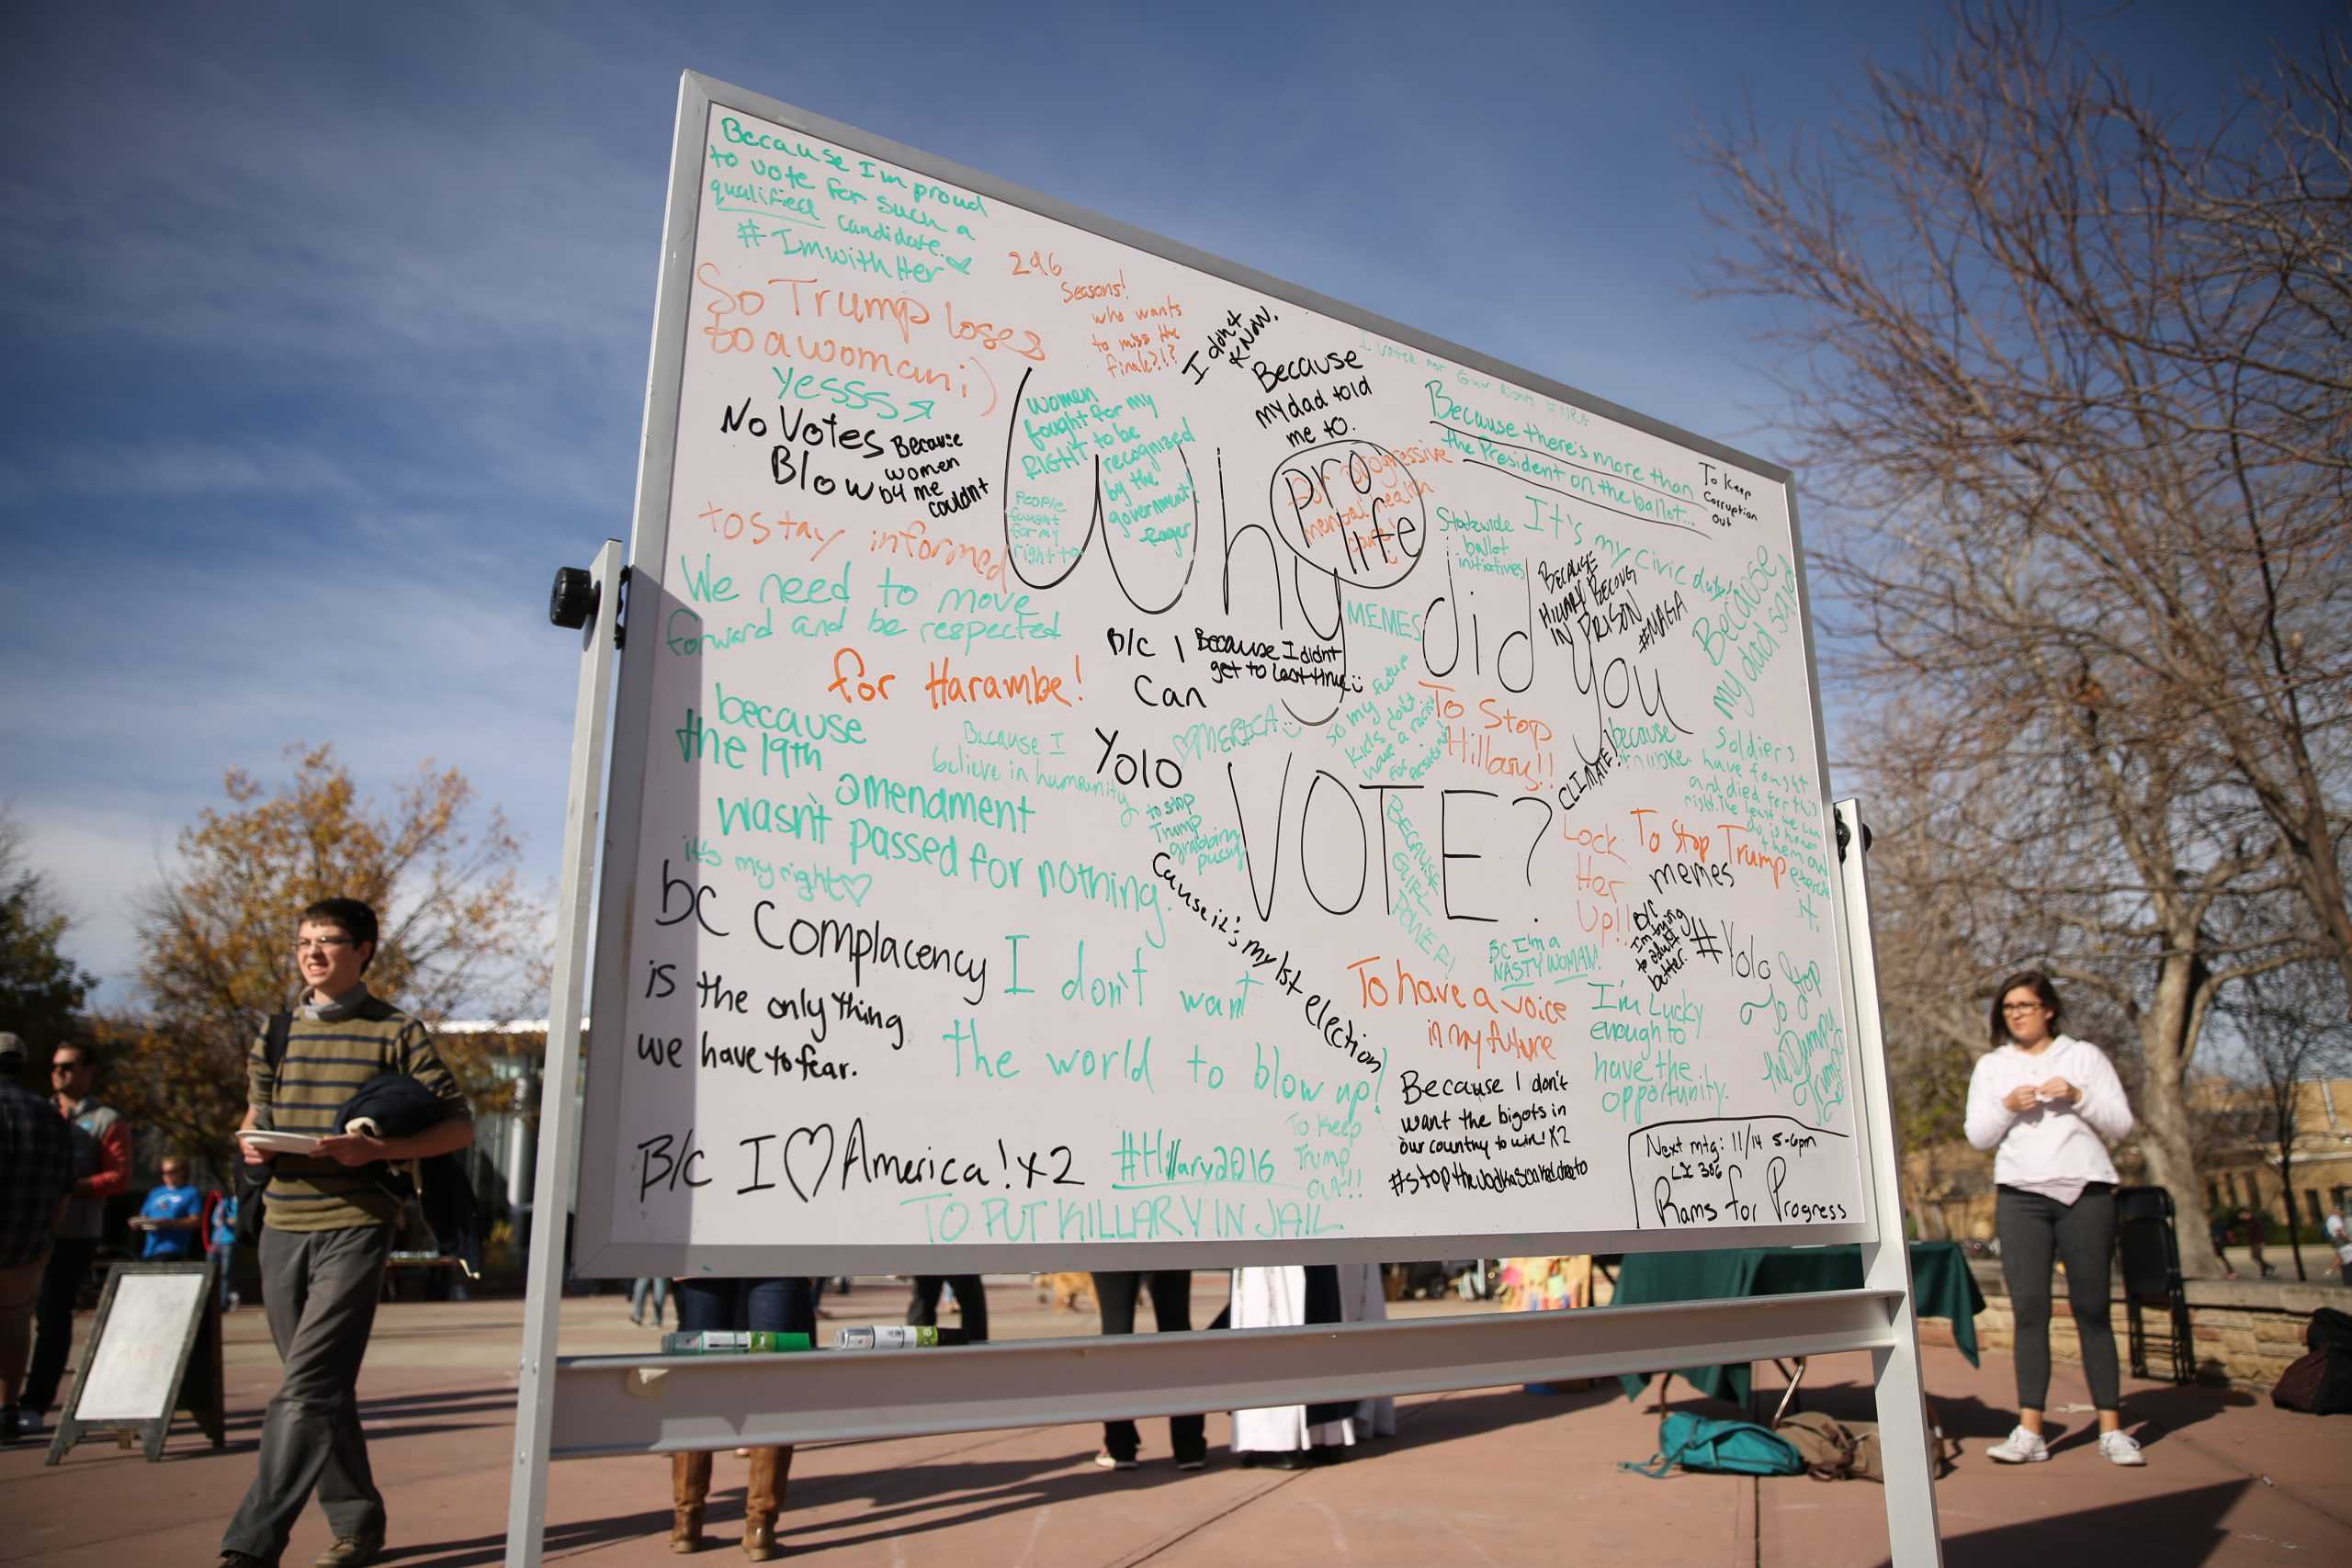 Because I'm proud
to vote for such a
qualified candidate.
#ImwithHer
So Trump loses
to a woman ;)
yessss
No Votes
Blow
Because
women
by me
couldn't
to stay informed
We need to move
forward and be respected
for Harambe!
because
the 19th
amendment
wasn't passed for nothing.
it's my right
bc Complacency
is the only thing
we have to fear.
B/c I ♡ America! x2
#Hillary2016
TO PUT KILLARY IN JAIL
I don't want
the world to blow up!
Because I
believe in
Yolo
B/c I
Can
Because I didn't
get to last time
♡MERICA
to stop
Trump
grabbing
pussy
Cause it's my 1st election
246
Seasons!
who wants
to miss the
finale?!?
I don't
KNOW.
Because
my dad told
me to.
women
fought for my
RIGHT to be
recognized
by the
government
People
fought
for my
right to
Why did you
VOTE?
pro
life
for progressive
mental health
care!
MEMES
so my future
kids don't
have a racist
for President
To Stop
Hillary!!
BECAUSE
GIRL
POWER!
Because there's more than
the President on the ballot...
To Keep
Corruption
Out
Statewide
ballot
initiatives
It's my civic duty
BECAUSE
HILLARY BELONGS
IN PRISON
#MAGA
Because
my dad said
CLIMATE!
because
Soldiers
have fought
and died for this
right. The least we can
do is honor
them and
exercise
it.
Lock
Her
Up!!
To Stop Trump
memes
B/C
I'm trying
to adult
better.
#Yolo
BC I'm a
NASTY WOMAN!
To have a voice
in my future
I'm Lucky
enough to
have the
opportunity.
To Stop
the Dumpy
Trump
To Keep
Trump
out!!
Because I don't
want the bigots in
our country to win! x2
Next mtg: 11/14 5-6pm
Rams for Progress